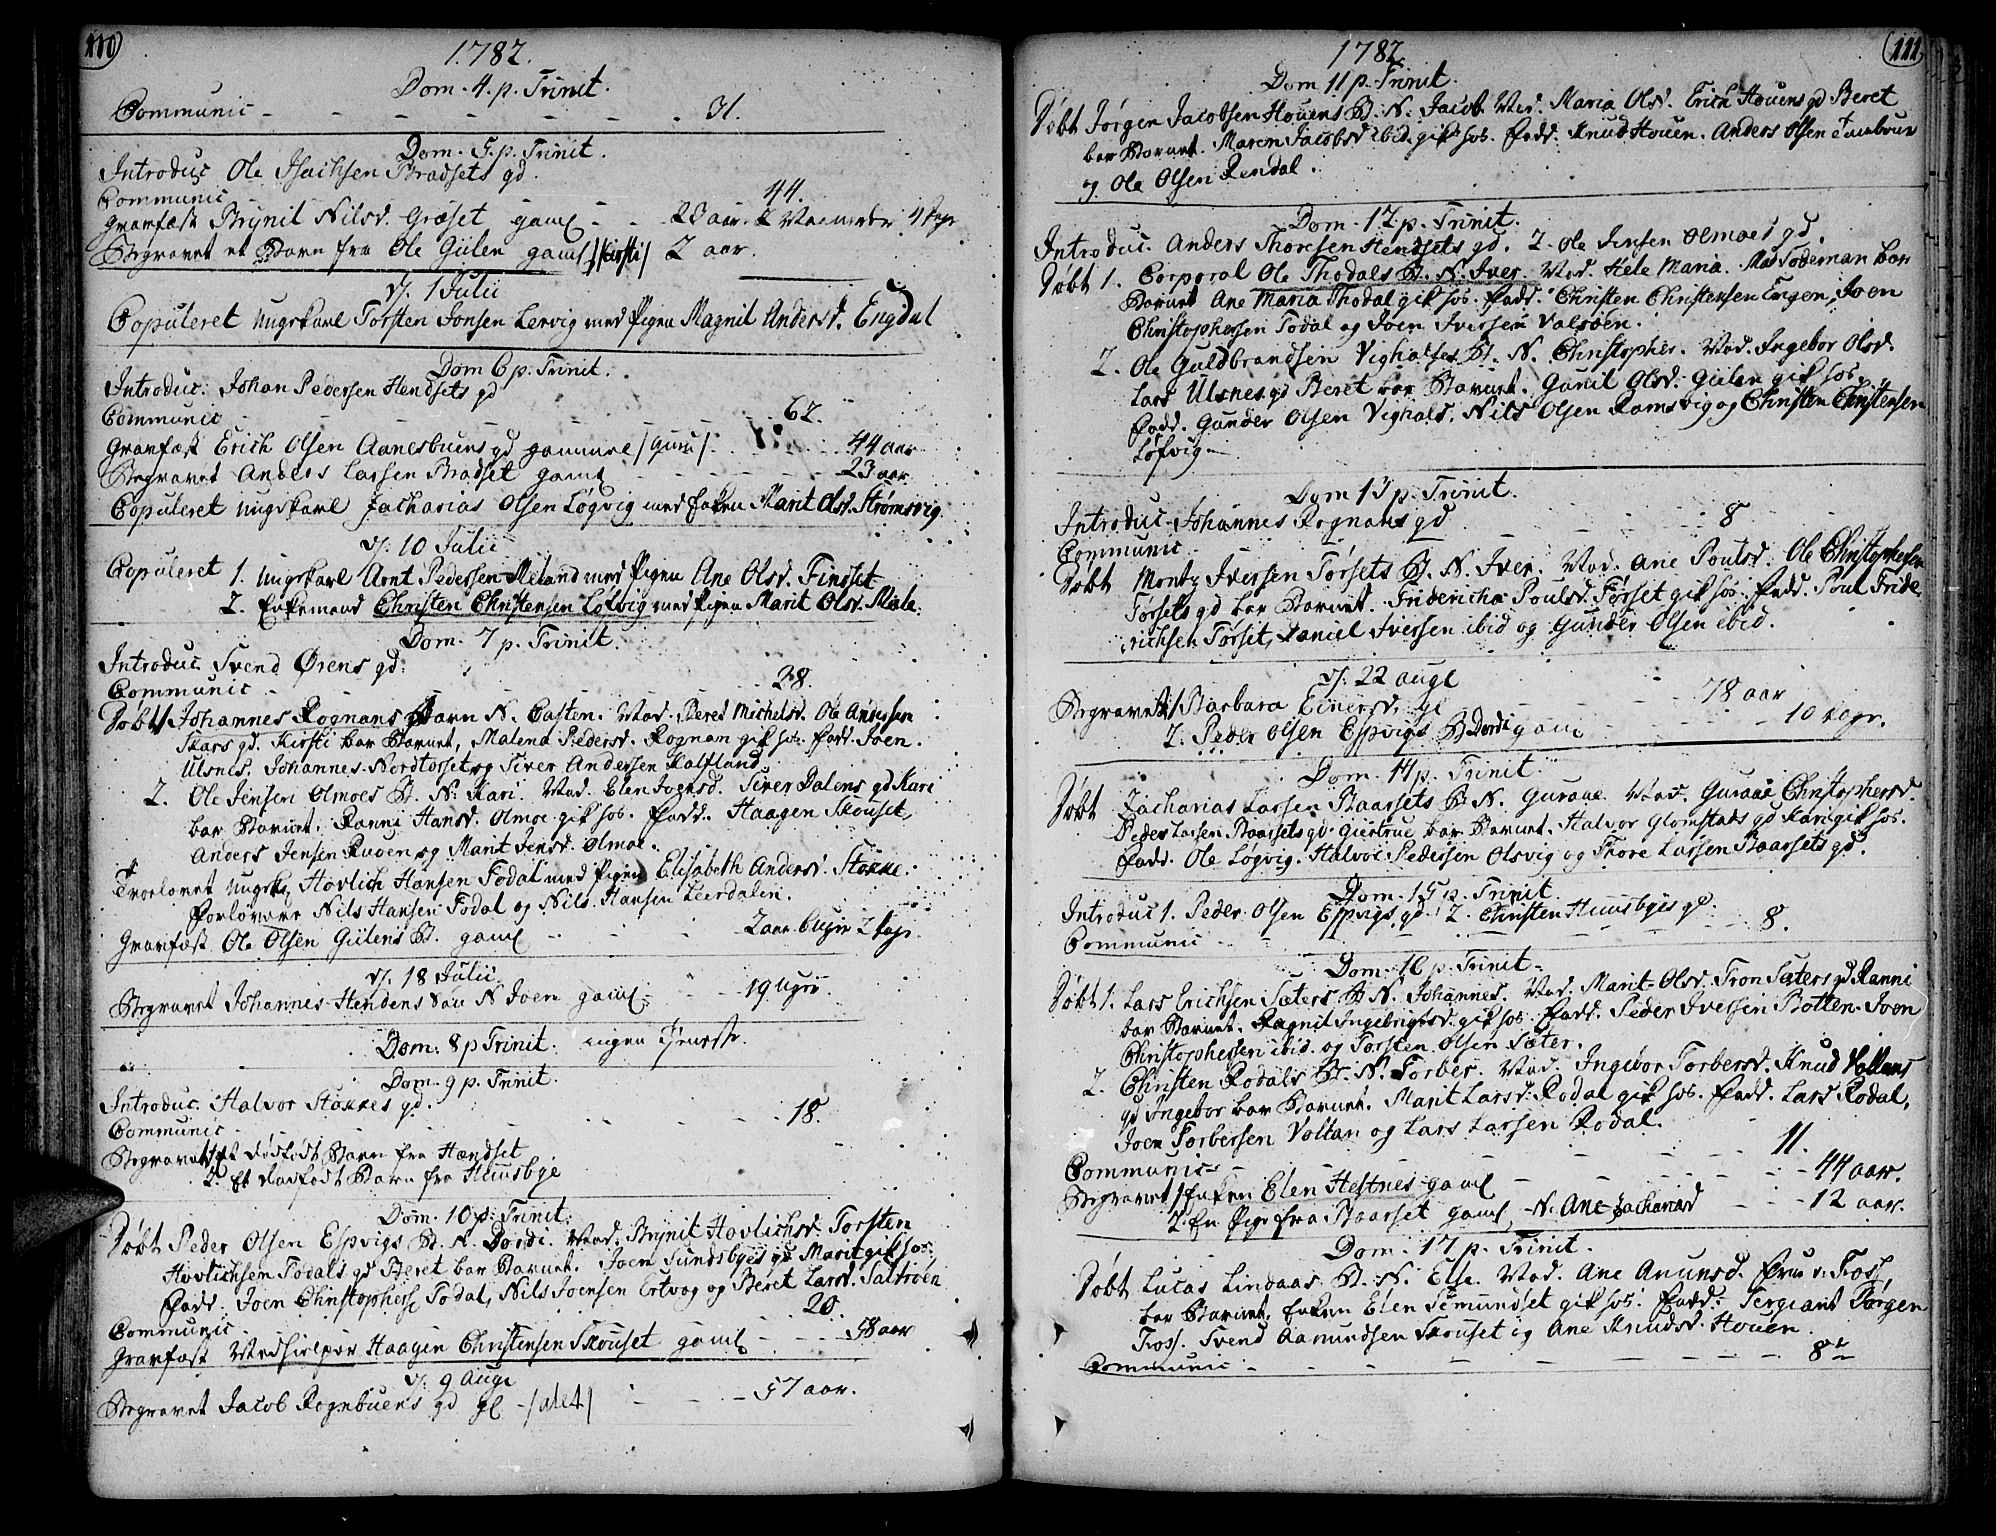 110
1782.
Dom. 4. p. Trinit.
Communic - - - - - - - 31.
Dom. 5. p. Trinit.
Introduc Ole Isachsen Bradsets gd.
Communic 44.
Gravfæst Brynil Nilsd. Græset gaml - - 20 aar 2 Maaneder 4 dage
Begravet et Barn fra Ole Giilen gaml /Kirsti/ 2 aar.
d. 1 Julii
Copuleret Ungkarl Torsten Jonsen Lervig med Pigen Magnil Andersd. Engdal
Dom 6 p. Trinit.
Introduc: Johan Pedersen Hendsets gd
Communic - - - - 62.
Gravfæst Erich Olsen Aanesbuens gd gammel /Guru/ - - 44 aar
Begravet Anders Larsen Bradset gaml - - 23 aar
Copuleret Ungkarl Zacharias Olsen Løgvig med Enken Marit Olsd. Strømsvig.
d. 10 Julii
Copuleret 1. Ungkarl Arnt Pedersen Meland med Pigen Ane Olsd. Finsset
2. Enkemand Christen Christensen Løfvig med Pigen Marit Olsd. Mæle.
Dom. 7 p. Trinit.
Introduc Svend Ørens gd:
Communic - - 38.
Døbt 1. Johannes Rognans Barn N. Casten. Mod. Beret Michelsd. Ole Andersen
Skars gd. Kirsti bar Barnet, Malena Pedersd. Rognan gik hos. Fadd. Joen
Ulsnes. Johannes Nordtorset og Siver Andersen Kalfland.
2. Ole Jensen Olmoes B. N. Kari. Mod. Elen Joensd. Siver Dalens gd Kari
bar Barnet. Ranni Hansd. Olmoe gik hos. Fadd. Haagen Skouset,
Anders Jensen Ruøen og Marit Jensd. Olmoe.
Troelovet Ungk. Hovlich Hansen Todal med Pigen Elisabeth Andersd. Stokke.
Forlovere Nils Hansen Todal og Nils Hansen Leerdalen.
Gravfæst Ole Olsen Giilens B. gaml - - 2 aar 6 Uger 2 dage.
d. 18 Julii
Begravet Johannes Hendens Søn N Joen gaml - - 19 Uger.
Dom: 8 p Trinit: ingen Tjeneste.
Dom. 9 p. Trinit.
Introduc. Halvor Stokkes gd.
Communic - - - - 18.
Begravet 1. Et dødfødt Barn fra Hændset
2. Et dødfødt Barn fra Huusbye
Dom. 10 p. Trinit.
Døbt Peder Olsen Espvigs B. N. Dordi. Mod. Brynit Hovlichsd. Torsten
Hovlichsen Todals gd Beret bar Barnet. Joen Sundsbyes gd Marit gik hos.
Fadd. Joen Christophers Todal, Nils Joensen Ertvog og Beret Larsd. Saltrøen
Communic - - 20.
Gravfæst Medhielper Haagen Christensen Skouset gaml - - 58 aar
d. 9 Augl
Begravet Jacob Rognbuens gd gl - - 57 aar.
111
1782
Dom 11 p. Trinit.
Døbt Jørgen Jacobsen Houens B. N. Jacob Mod. Maria Olsd. Erich Houens gd Beret
bar Barnet. Maren Jacobsd ibid. gik hos. Fadd. Knud Houen. Anders Olsen Tambour
og Ole Olsen Rendal.
Dom. 12. p. Trinit.
Introduc. Anders Thoresen Hendsets gd. 2. Ole Jensen Olmoes gd.
Døbt 1. Corporal Ole Thodals B. N. Iver. Mod. Hele Maria. Mad Todeman bar
Barnet Ane Maria Thodal gik hos. Fadd. Christen Christensen Engen, Joen
Christophersen Todal og Joen Iversen Valsøen.
2. Ole Guldbrandsen Vighals B. N. Christopher. Mod. Ingebor Olsd.
Lars Ulsnes gd Beret bar Barnet. Gunil Olsd. Giilen gik hos.
Fadd. Gunder Olsen Vighals. Nils Olsen Ramsvig og Christen Christensen
Løfvig.
Dom 13 p. Trinit.
Introduc. Johannes Rognans gd
Communic - - - - 8
Døbt Montz Iversen Torsets B. N. Iver. Mod. Ane Poulsd. Ole Christophersen
Torsets gd bar Barnet. Friderica Poulsd. Torset gik hos. Fadd. Poul Fride-
richsen Torset, Daniel Iversen ibid og Gunder Olsen ibid.
d. 22 augl
Begravet 1. Barbara Einersd. gl - - 78 aar
2. Peder Olsen Espvigs B. Dordi gaml - - 10 dage.
Dom. 14 p. Trinit.
Døbt Zacharias Larsen Baarsets B. N. Guroue. Mod. Guroue Christophersd.
Peder Larsen Baarsets gd. Giertrue bar Barnet. Halvor Glomstads gd Kari gik hos.
Fadd. Ole Løgvig. Halvor Pedersen Olsvig og Thore Larsen Baarsets gd.
Dom. 15 p. Trinit.
Introduc 1. Peder Olsen Espvigs gd. 2. Christen Huusbyes gd.
Communic - - 8.
Dom. 16 p. Trinit.
Døbt 1. Lars Erichsen Sæters B. N. Johannes. Mod. Marit Olsd. Tron Sæters gd Ranni
bar Barnet. Ragnil Ingebrigtsd. gik hos. Fadd. Peder Iversen Botten. Joen
Christophersen ibid. og Torsten Olsen Sæter.
2. Christen Rodals B. N. Torber. Mod. Ingebor Torbersd. Knud Voltans
gd Ingebor bar Barnet. Marit Larsd. Rodal gik hos. Fadd. Lars Rodal,
Joen Torbersen Voltan og Lars Larsen Rodal.
Communic - - - - 11.
Begravet 1 Enken Elen Hestnes gaml - - 44 aar.
2. En Pige fra Baarset gaml, N. Ane Zachariasd - - 12 aar.
Dom. 17 p. Trinit.
Døbt Lucas Lindaas B. N. Else. Mod. Ane Amunsd. Frue v. Foss
bar Barnet. Enken Elen Semundset gik hos. Fadd. Sergiant Jørgen
Foss. Svend Aamundsen Skouset og Ane Knudsd. Houen.
Communic - - - - 8